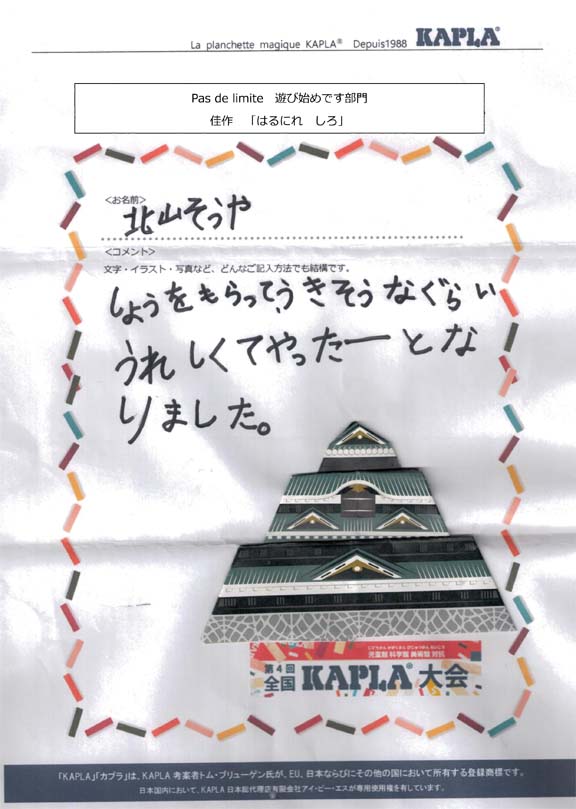 La planchette magique KAPLA® Depuis1988 KAPLA®
Pas de limite 遊び始めです部門
佳作 「はるにれ しろ」
<お名前>
北山そうや
<コメント>
文字・イラスト・写真など、どんなご記入方法でも結構です。
しょうをもらって、うきそうなぐらい
うれしくてやったーとな
りました。
じどうかん かがくかん びじゅつかんたいこう
児童館 科学館 美術館 対抗
第4回
全国 KAPLA® 大会
「KAPLA」「カプラ」は、KAPLA 考案者トム・ブリューゲン氏が、EU、日本ならびにその他の国において所有する登録商標です。
日本国内において、KAPLA 日本総代理店有限会社アイ・ピー・エスが専用使用権を有しています。